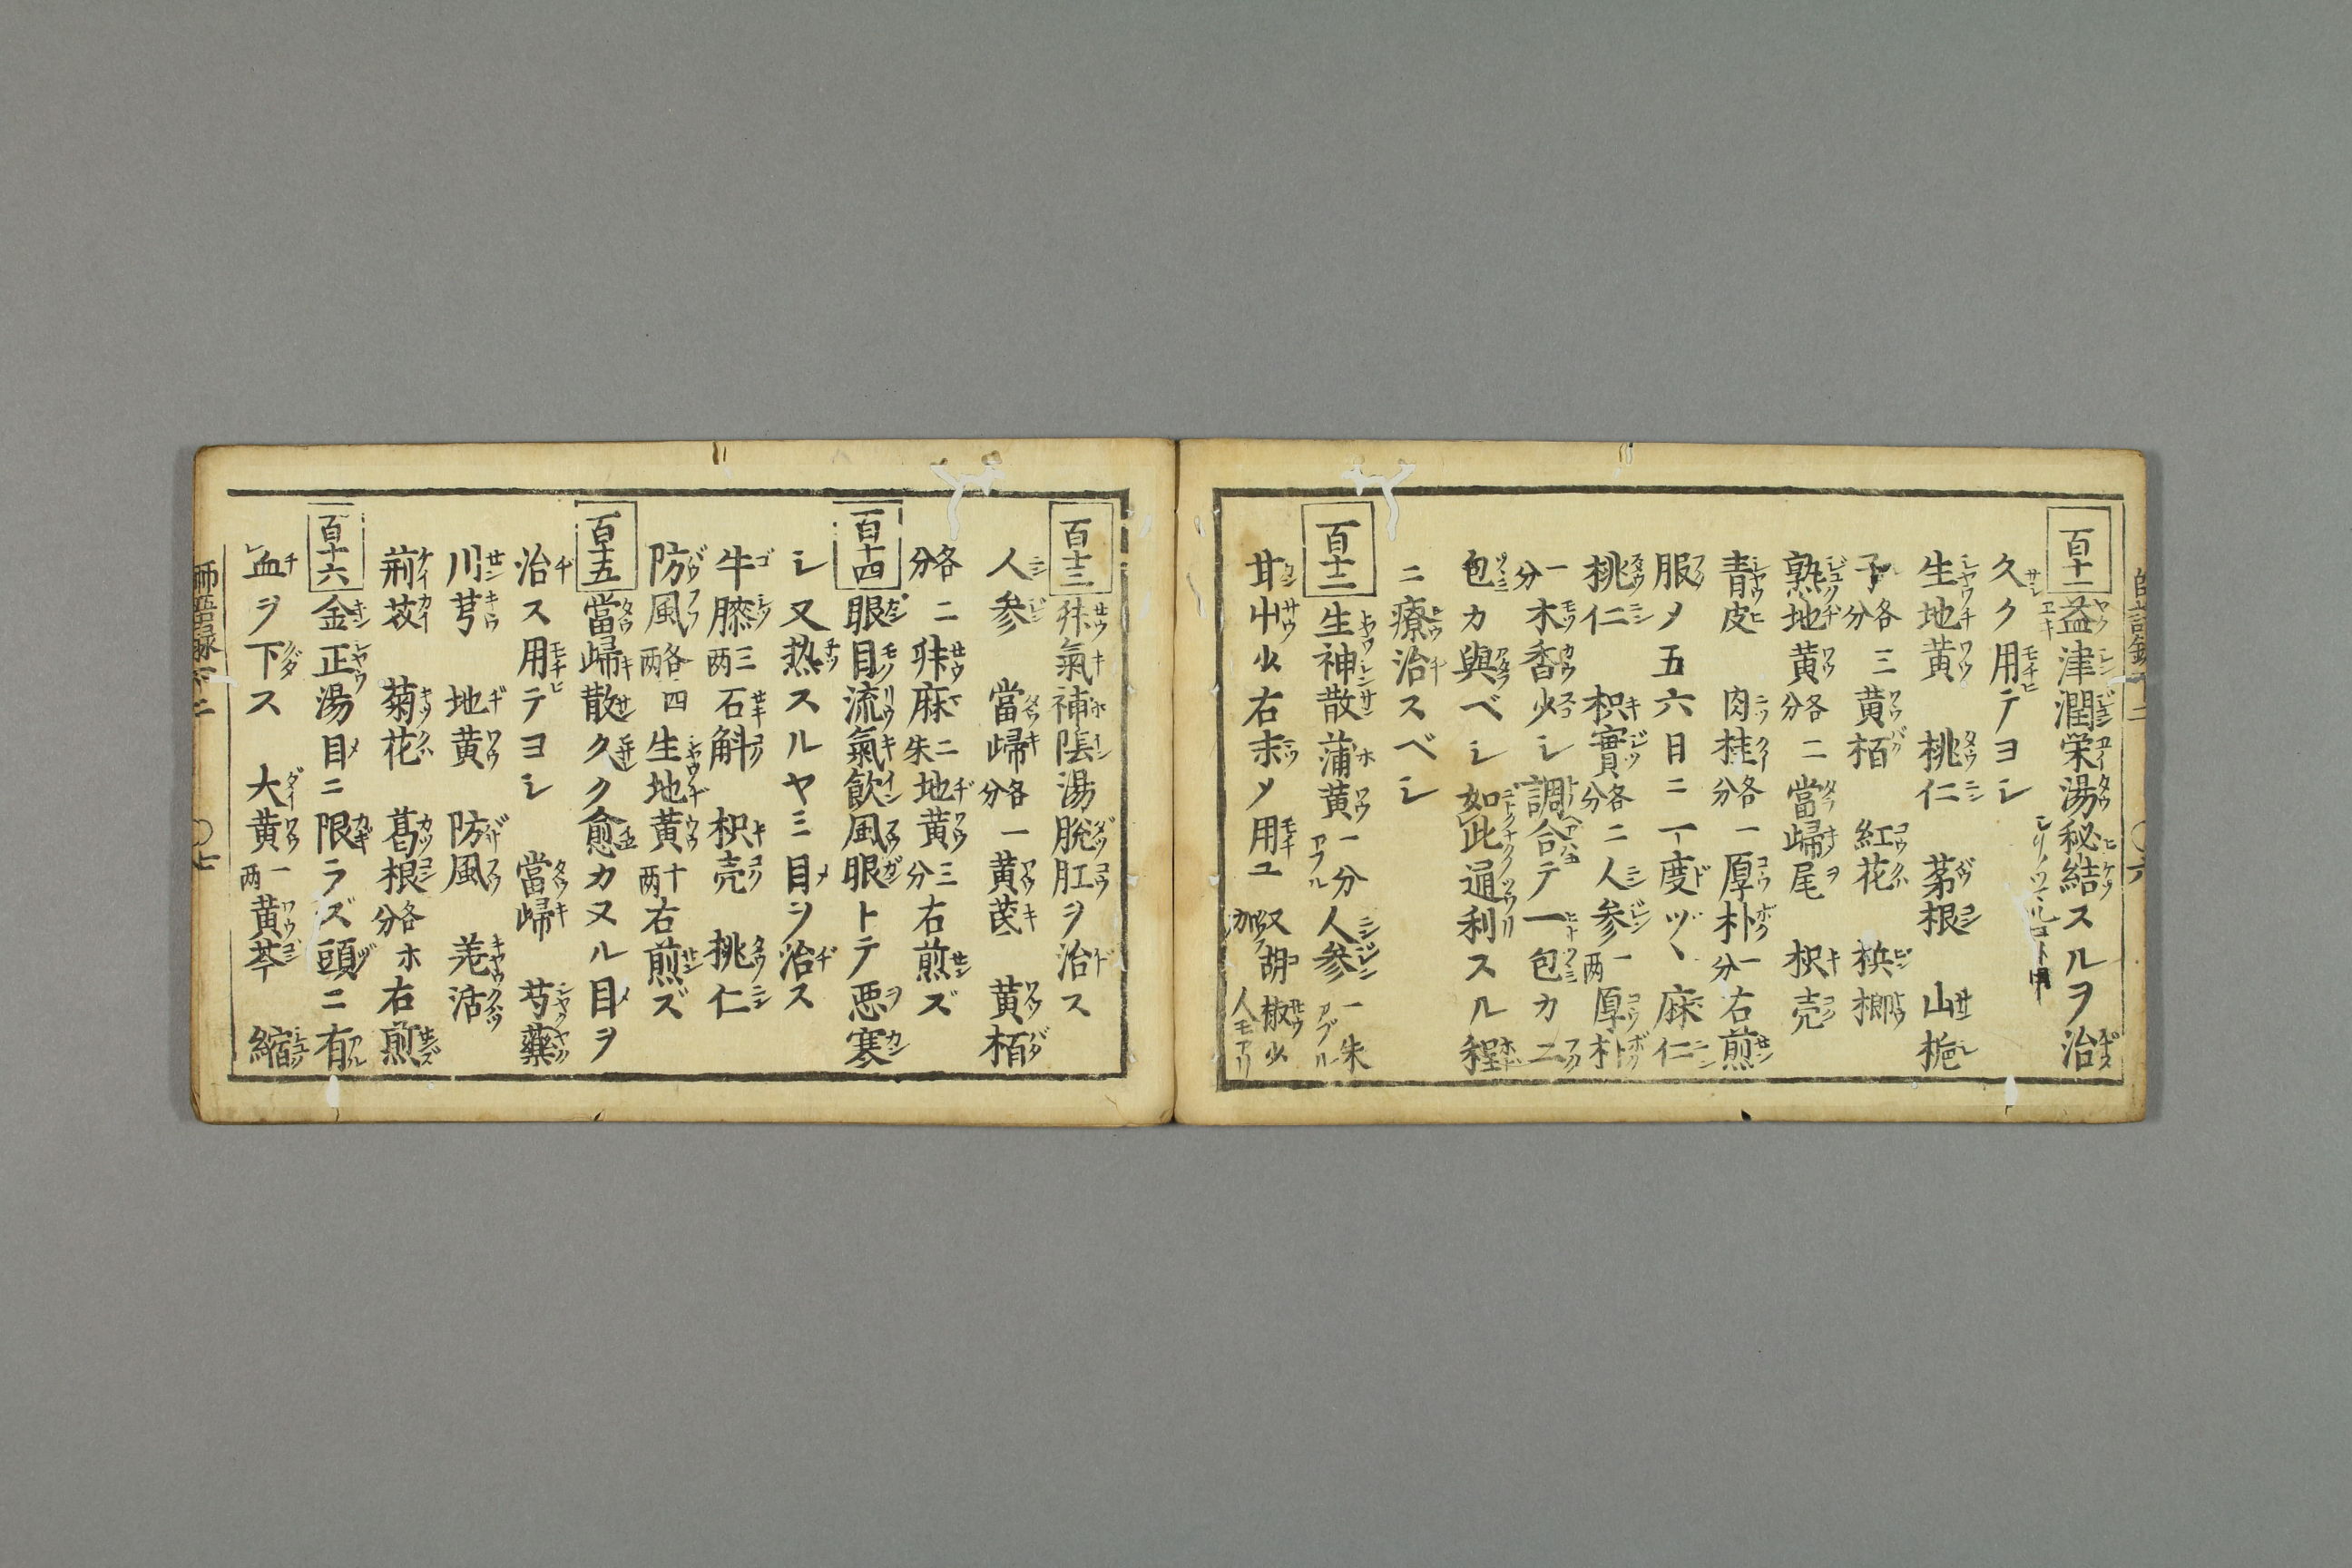 百十一 益津潤栄湯秘結スルヲ治
久ク用テヨシ
生地黄 桃仁 茅根 山梔
子各三分 黄栢 紅花 梹榔
熟地黄各二分 當歸尾 枳壳
青皮 肉桂各一分 厚朴一分 右煎
服メ五六日ニ一度ヅヽ麻仁
桃仁 枳實各二分 人参一両 厚朴
一分 木香少シ調合テ一包カ二
包カ與ベシ如此通利スル程
ニ療治スベシ
百十二 生神散 蒲黄一分アブル 人参一朱アブル
甘中少右末メ用ユ 又胡椒少加人モアリ
百十三 升氣補陰湯脱肛ヲ治ス
人参 當歸各一分 黄茋 黄栢
各二分 升麻二朱 地黄三分 右煎ズ
百十四 眼目流氣飲風眼トテ悪寒
シ又熱スルヤミ目ヲ治ス
牛膝三両 石斛 枳壳 桃仁
防風各四両 生地黄十両 右煎ズ
百十五 當歸散久ク愈カヌル目ヲ
治ス用テヨシ 當歸 芍藥
川芎 地黄 防風 羌活
荊芥 菊花 葛根各ホ分 右煎
百十六 金正湯目ニ限ラズ頭ニ有
血ヲ下ス 大黄一両 黄芩 縮
師語録下二 〇七